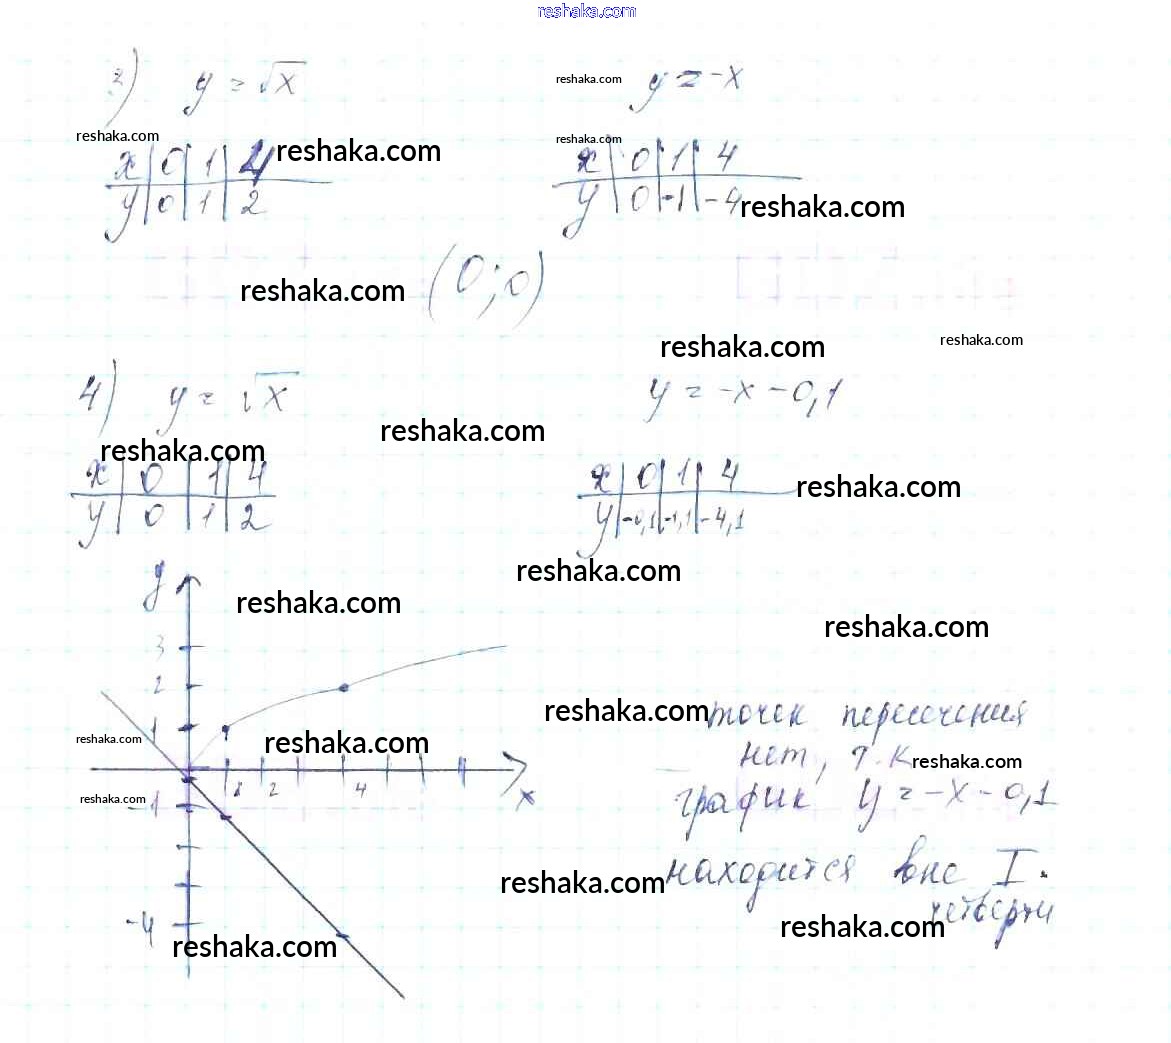 reshaka.com
3) y = √x   reshaka.com   y = -x
reshaka.com   reshaka.com
x | 0 | 1 | 4   reshaka.com   x | 0 | 1 | 4
y | 0 | 1 | 2   y | 0 | -1 | -4   reshaka.com
reshaka.com   (0;0)
reshaka.com   reshaka.com
4) y = √x   y = -x - 0,1
reshaka.com   reshaka.com
x | 0 | 1 | 4   x | 0 | 1 | 4   reshaka.com
y | 0 | 1 | 2   y | -0,1 | -1,1 | -4,1
reshaka.com
y   reshaka.com
reshaka.com
3
2
reshaka.com   точек пересечения
1
reshaka.com   reshaka.com   нет, т.к   reshaka.com
2   4   x
reshaka.com   -1   график y = -x - 0,1
reshaka.com   находится вне I
-4   reshaka.com   четверти
reshaka.com